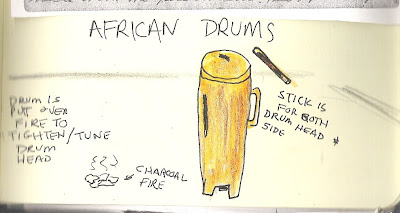 AFRICAN DRUMS
DRUM IS
PUT OVER
FIRE TO
TIGHTEN/TUNE
DRUM
HEAD
CHARCOAL
FIRE
STICK IS
FOR BOTH
DRUM HEAD &
SIDE